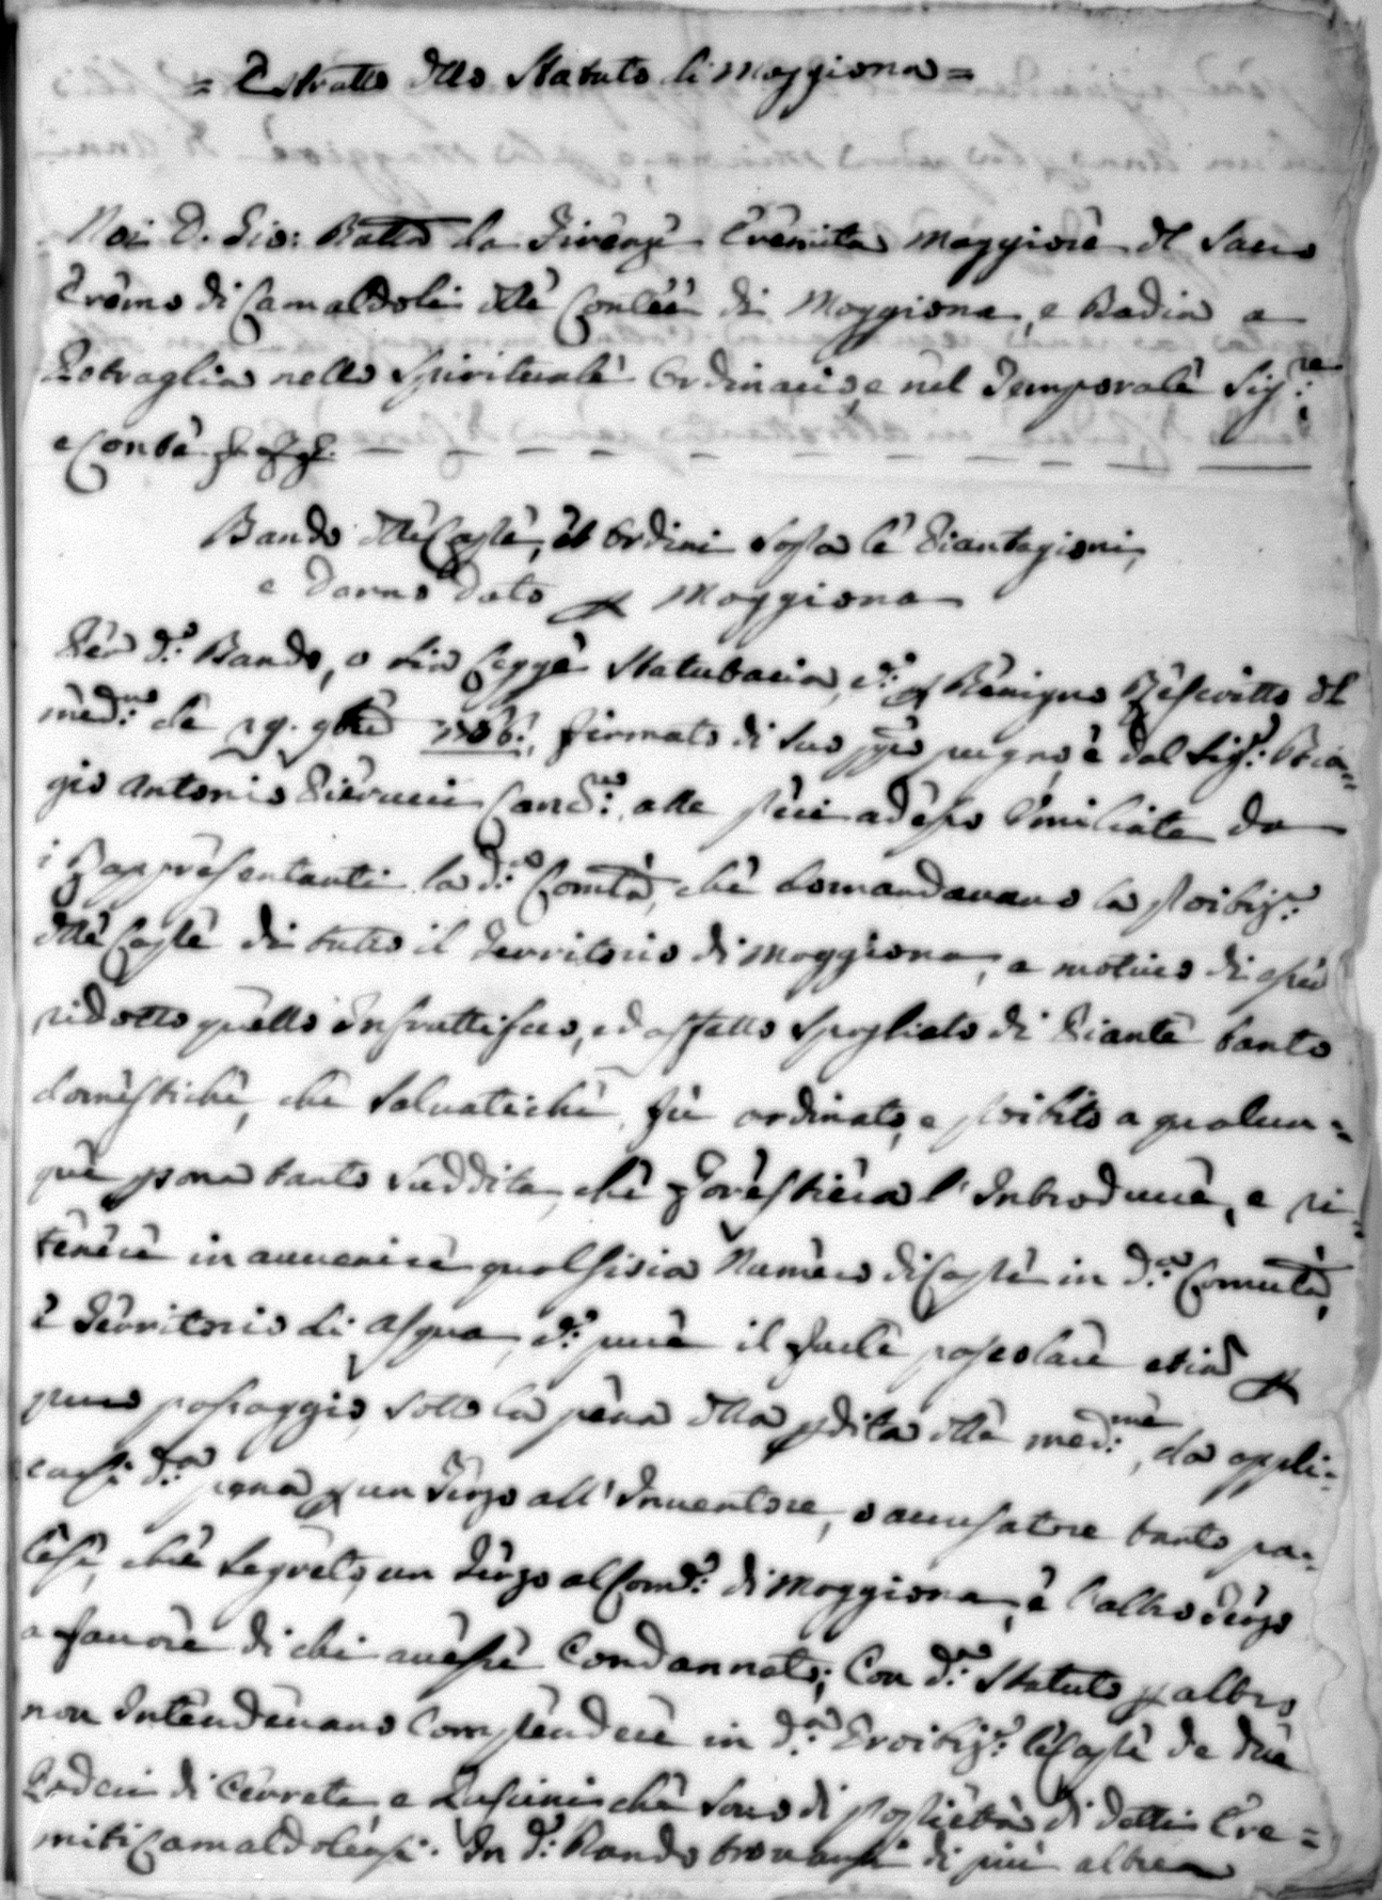 = Estratto dllo Statuto di Moggiona =
Noi D. Gio: Batta da Firenze Eremita Maggiore dl Sacro
Eremo di Camaldoli dlle Contèe di Moggiona, e Badia a
Pratraglia nello Spirituale Ordinario, e nel Temporale Sig.re
e Conte
Bando dlle Capre, et Ordini sopra le Piantagioni,
e Danno dato p Moggiona
Per d.o Bando, o sia Legge Statutaria, e p Benigno Rescritto dl
med.mo de 19. 9bre 1706:, firmato di suo pugno, e dal Sig.r Bia=
gio Antonio Pierucci Canc.re, alle preci adesso umiliate da
i Rappresentanti la d.a Comtà, che domandavano la proibiz.e
dlle Capre di tutto il Territorio di Moggiona, a motivo di esser
ridotto quello Infruttifero, ed affatto spogliato di Piante tanto
domestiche, che salvatiche, fu ordinato, e proibito a qualun=
que psona tanto suddita, che Forestiera l'Introdurre, e ri=
tenere in avvenire qualsisia Numero di Capre in d.a Comunità,
e Territorio di essa, e pure il farle pascolare etiam p
puro passaggio, sotto la pena dlla pdita dlle med.me, da appli=
carsi d.a pena p un Terzo all'Inventore, o accusatore tanto pa=
lese, che segreto, un Terzo al Com.e di Moggiona, e l'altro Terzo
a favore di chi avesse Condannato; Con d.o Statuto p altro
non Intendevano Comprendere in d.a Proibiz.e le Capre de due
Poderi di Cerreta, e che sono di proprietà di detti Ere=
miti Camaldolensi. In d.o Bando trovansi di più altre